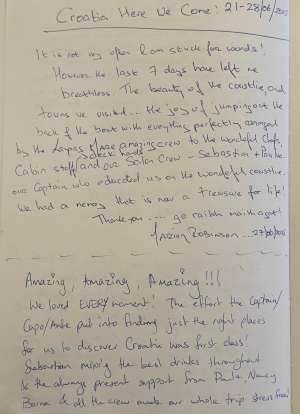 Croatia Here We Come! 21-28/06/
It is not very often I am stuck for words!
However the last 7 days have left me
breathless. The beauty of the coastline, and
towns we visited... the joy of jumping out the
back of the boat with everything perfectly arranged
by the amazing crew to the wonderful Chefs,
Select hands
Cabin staff and our Salon Crew - Sebastian +
our Captain who educated us on the wonderful coastline.
We had a that is now a treasure for life!
Thank you .... go raibh maith agat!
Robinson... 27/06/
Amazing, Amazing, Amazing!!!
We loved EVERY moment! The effort the Captain/
Capo/Ante put into finding just the right places
for us to discover Croatia was first class!
Sebastian mixing the best drinks throughout
to the always present support from Paula, Nancy
& all the crew made our whole trip stress free!